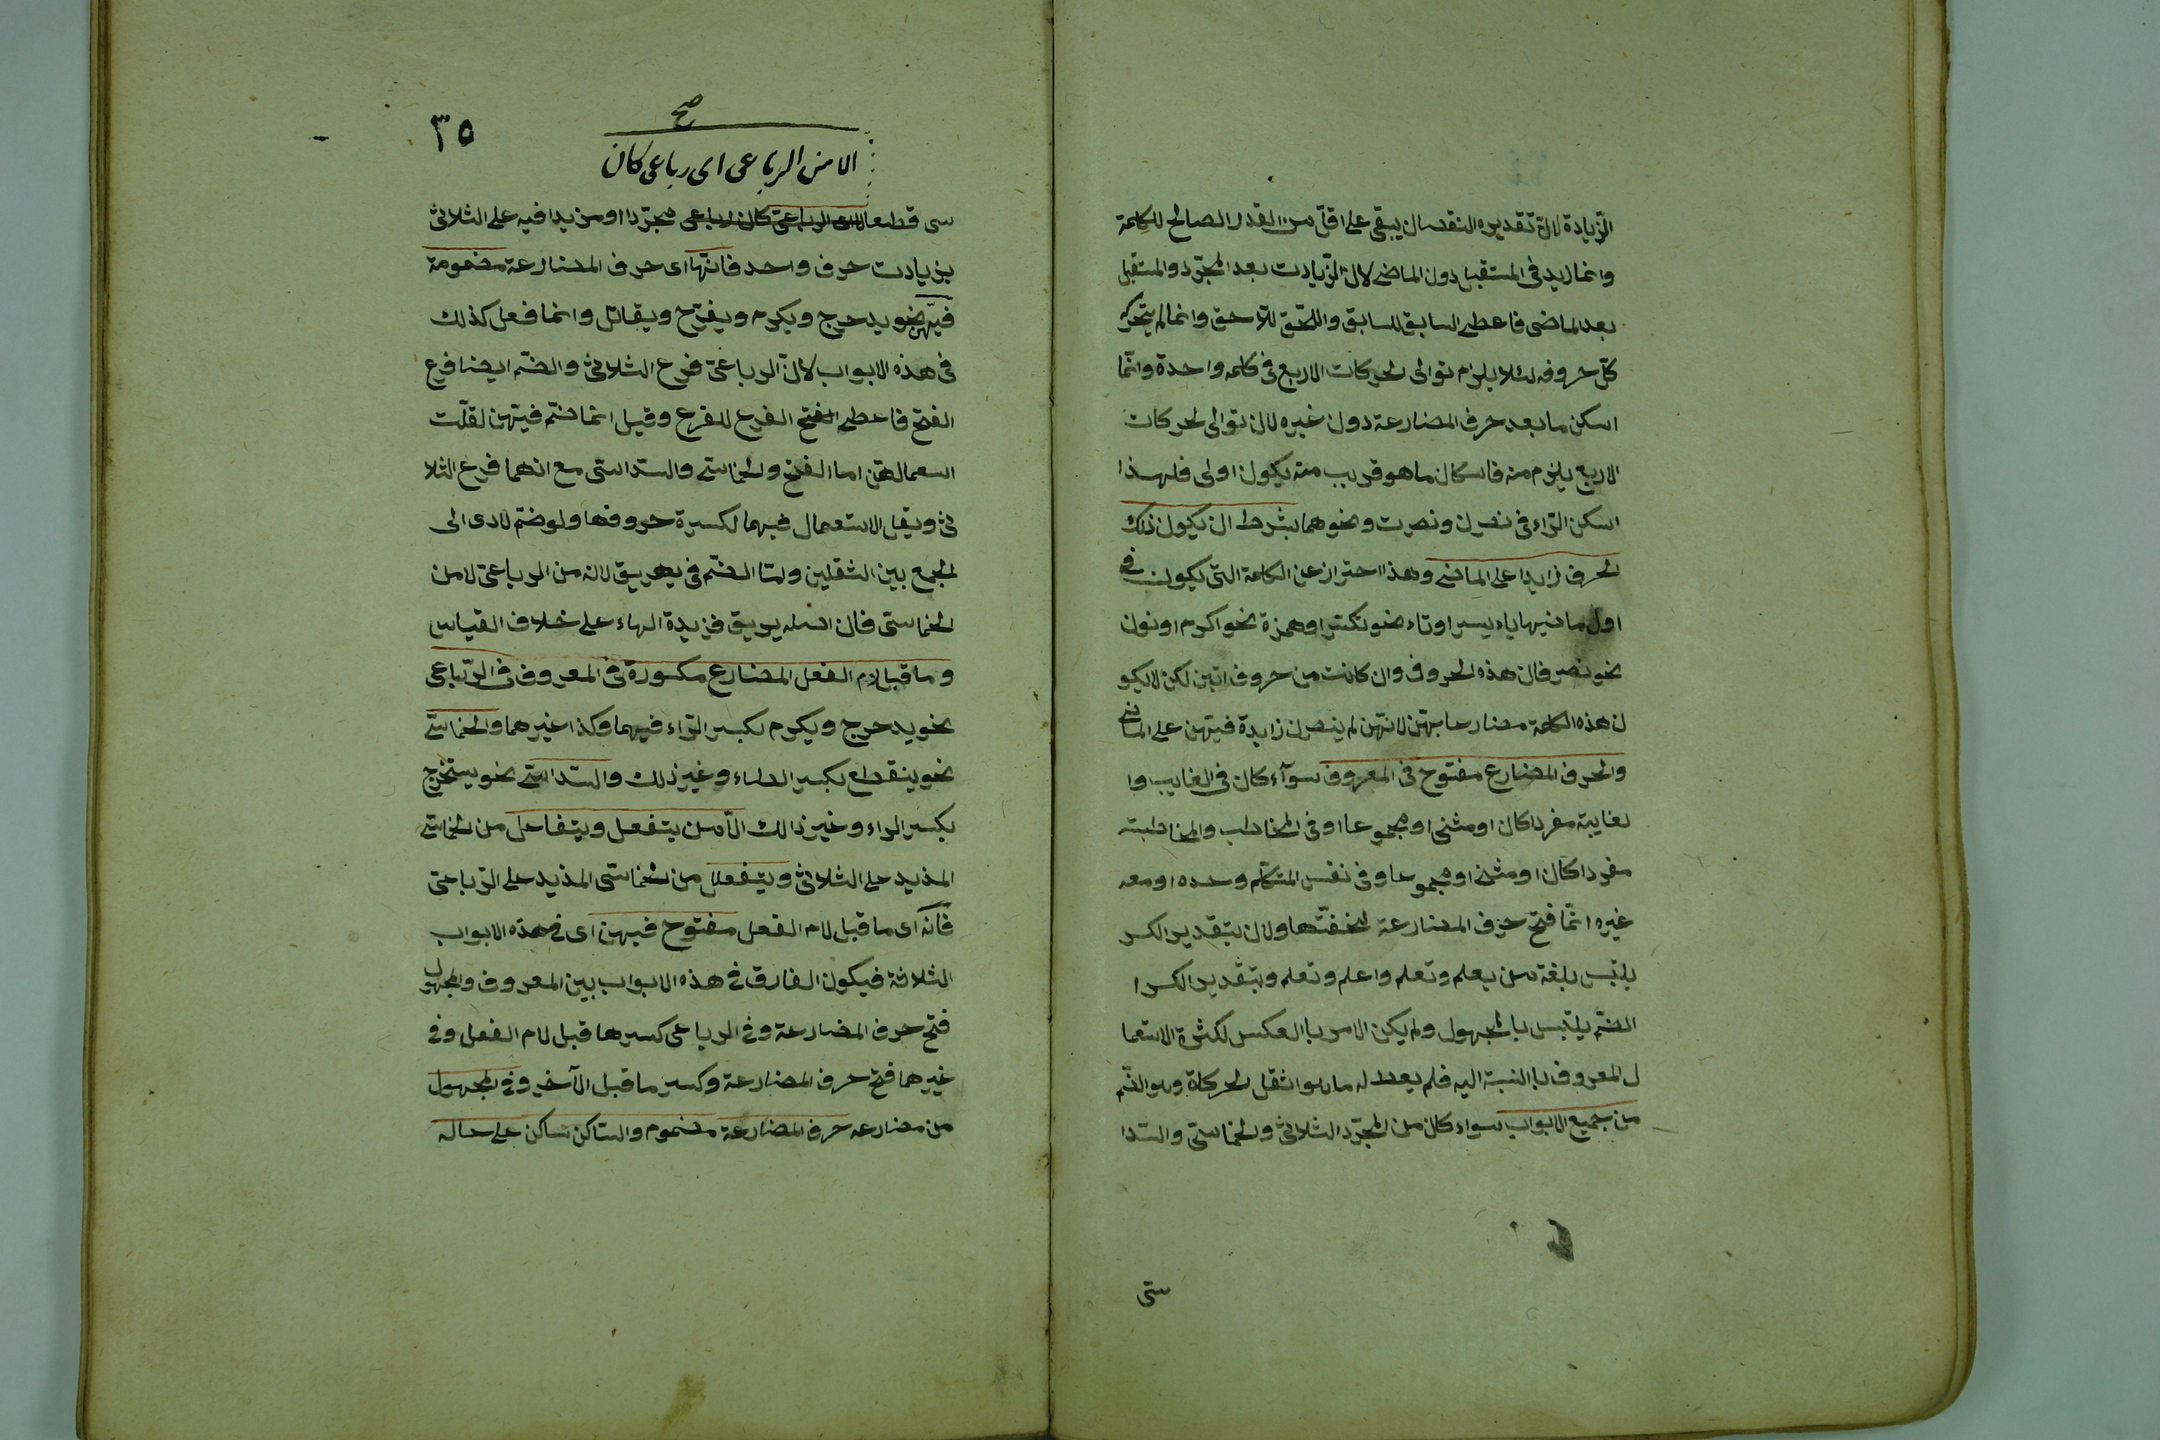 الزيادة لان تقديره النقصان يبقى على اقل من القدر الصالح للكلمة
وانما زيد فى المستقبل دون الماضى لان الزيادت بعد المجرد والمستقبل
بعد الماضى فاعطى السابق للسابق واللاحق للاحق وانما لم يتحرك
كل حروفه لئلا يلزم توالى الحركات الاربع فى كلمه واحدة وانما
اسكن ما بعد حرف المضارعة دون غيره لان توالى الحركات
الاربع يلزم منه فاسكان ما هو قريب منه يكون اولى فلهذا
اسكن الراء فى نصرن ونصرت ونحوهما بشرط ان يكون ذلك
الحرف زايدا على الماضى وهذا احتراز عن الكلمة التى يكون فى
اول ماضيها ياء يسر او تاء نحو تكسر او همزة نحو اكرم او نون
نحو نصر فان هذه الحروف وان كانت من حروف اتين لكن لا يكو
ن هذه الكلمة مضارعا بهن لانهن لم ينصرن زايدة فيهن على الماضى
والحرف المضارع مفتوح فى المعروف سوآء كان فى الغايب وا
لغايبة مفردا كان او مثنى او مجموعا او فى المخاطب والمخاطبة
مفردا كان او مثنى او مجموعا وفى نفس المتكلم وحده او معه
غيره انما فتح حرف المضارعة لخفتها ولان بتقدير الكسر
يلتبس بلغة من يعلم وتعلم واعلم ونعلم وبتقدير الكسرا
الضم يلتبس بالمجهول ولم يكن الامر باالعكس لكثرة الاستعما
ل المعروف باالنسبة اليه فلم يعط له ما هو اثقل الحركاة وهو الضم
من جميع الابواب سواء كان من المجرد الثلاثى والخماسى والسدا
سى
٣٥
صح
الا من الرباعى اى رباعى كان
سى قطعا مجردا او مزيدا فيه على الثلاثى
بزيادت حرف واحد فانها اى حرف المضارعة مضمومة
فيهن نحو يدحرج ويكرم ويفرح ويقاتل وانما فعل كذلك
فى هذه الابواب لان الرباعى فرع الثلاثى والضم ايضا فرع
الفتح فاعطى الفرع للفرع وقيل انما ضم فيهن لقلت
استعمالهن اما الفتح والخماسى والسداسى مع انهما فرع الثلا
ثى ويقل الاستعمال فيهما لكسرة حروفها ولو ضم لادى الى
الجمع بين الثقلين ولنا الضم فى يهريق لانه من الرباعى لا من
الخماسى فان اصله يريق فزيدة الهاء على خلاف القياس
وما قبل لام الفعل المضارع مكسورة فى المعروف فى الرباعى
نحو يدحرج ويكرم بكسر الراء فيهما وكذا غيرهما والخماسى
نحو ينقطع بكسر الطاء وغير ذلك والسداسى نحو يستخرج
بكسر الراء وغير ذالك الا من يتفعل ويتفاعل من الخماسى
المذيد على الثلاثى ويتفعلل من الخماسى المذيد على الرباعى
فانه اى ما قبل لام الفعل مفتوح فيهن اى فى هذه الابواب
الثلاثة فيكون الفارق فى هذه الابواب بين المعروف والمجهول
فتح حرف المضارعة وفى الرباعى كسر ها قبل لام الفعل وفى
غيرهما فتح حرف المضارعة وكسر ما قبل الآخر وفى المجهول
من مضارعه حرف المضارعة مضموم والساكن ساكن على حاله